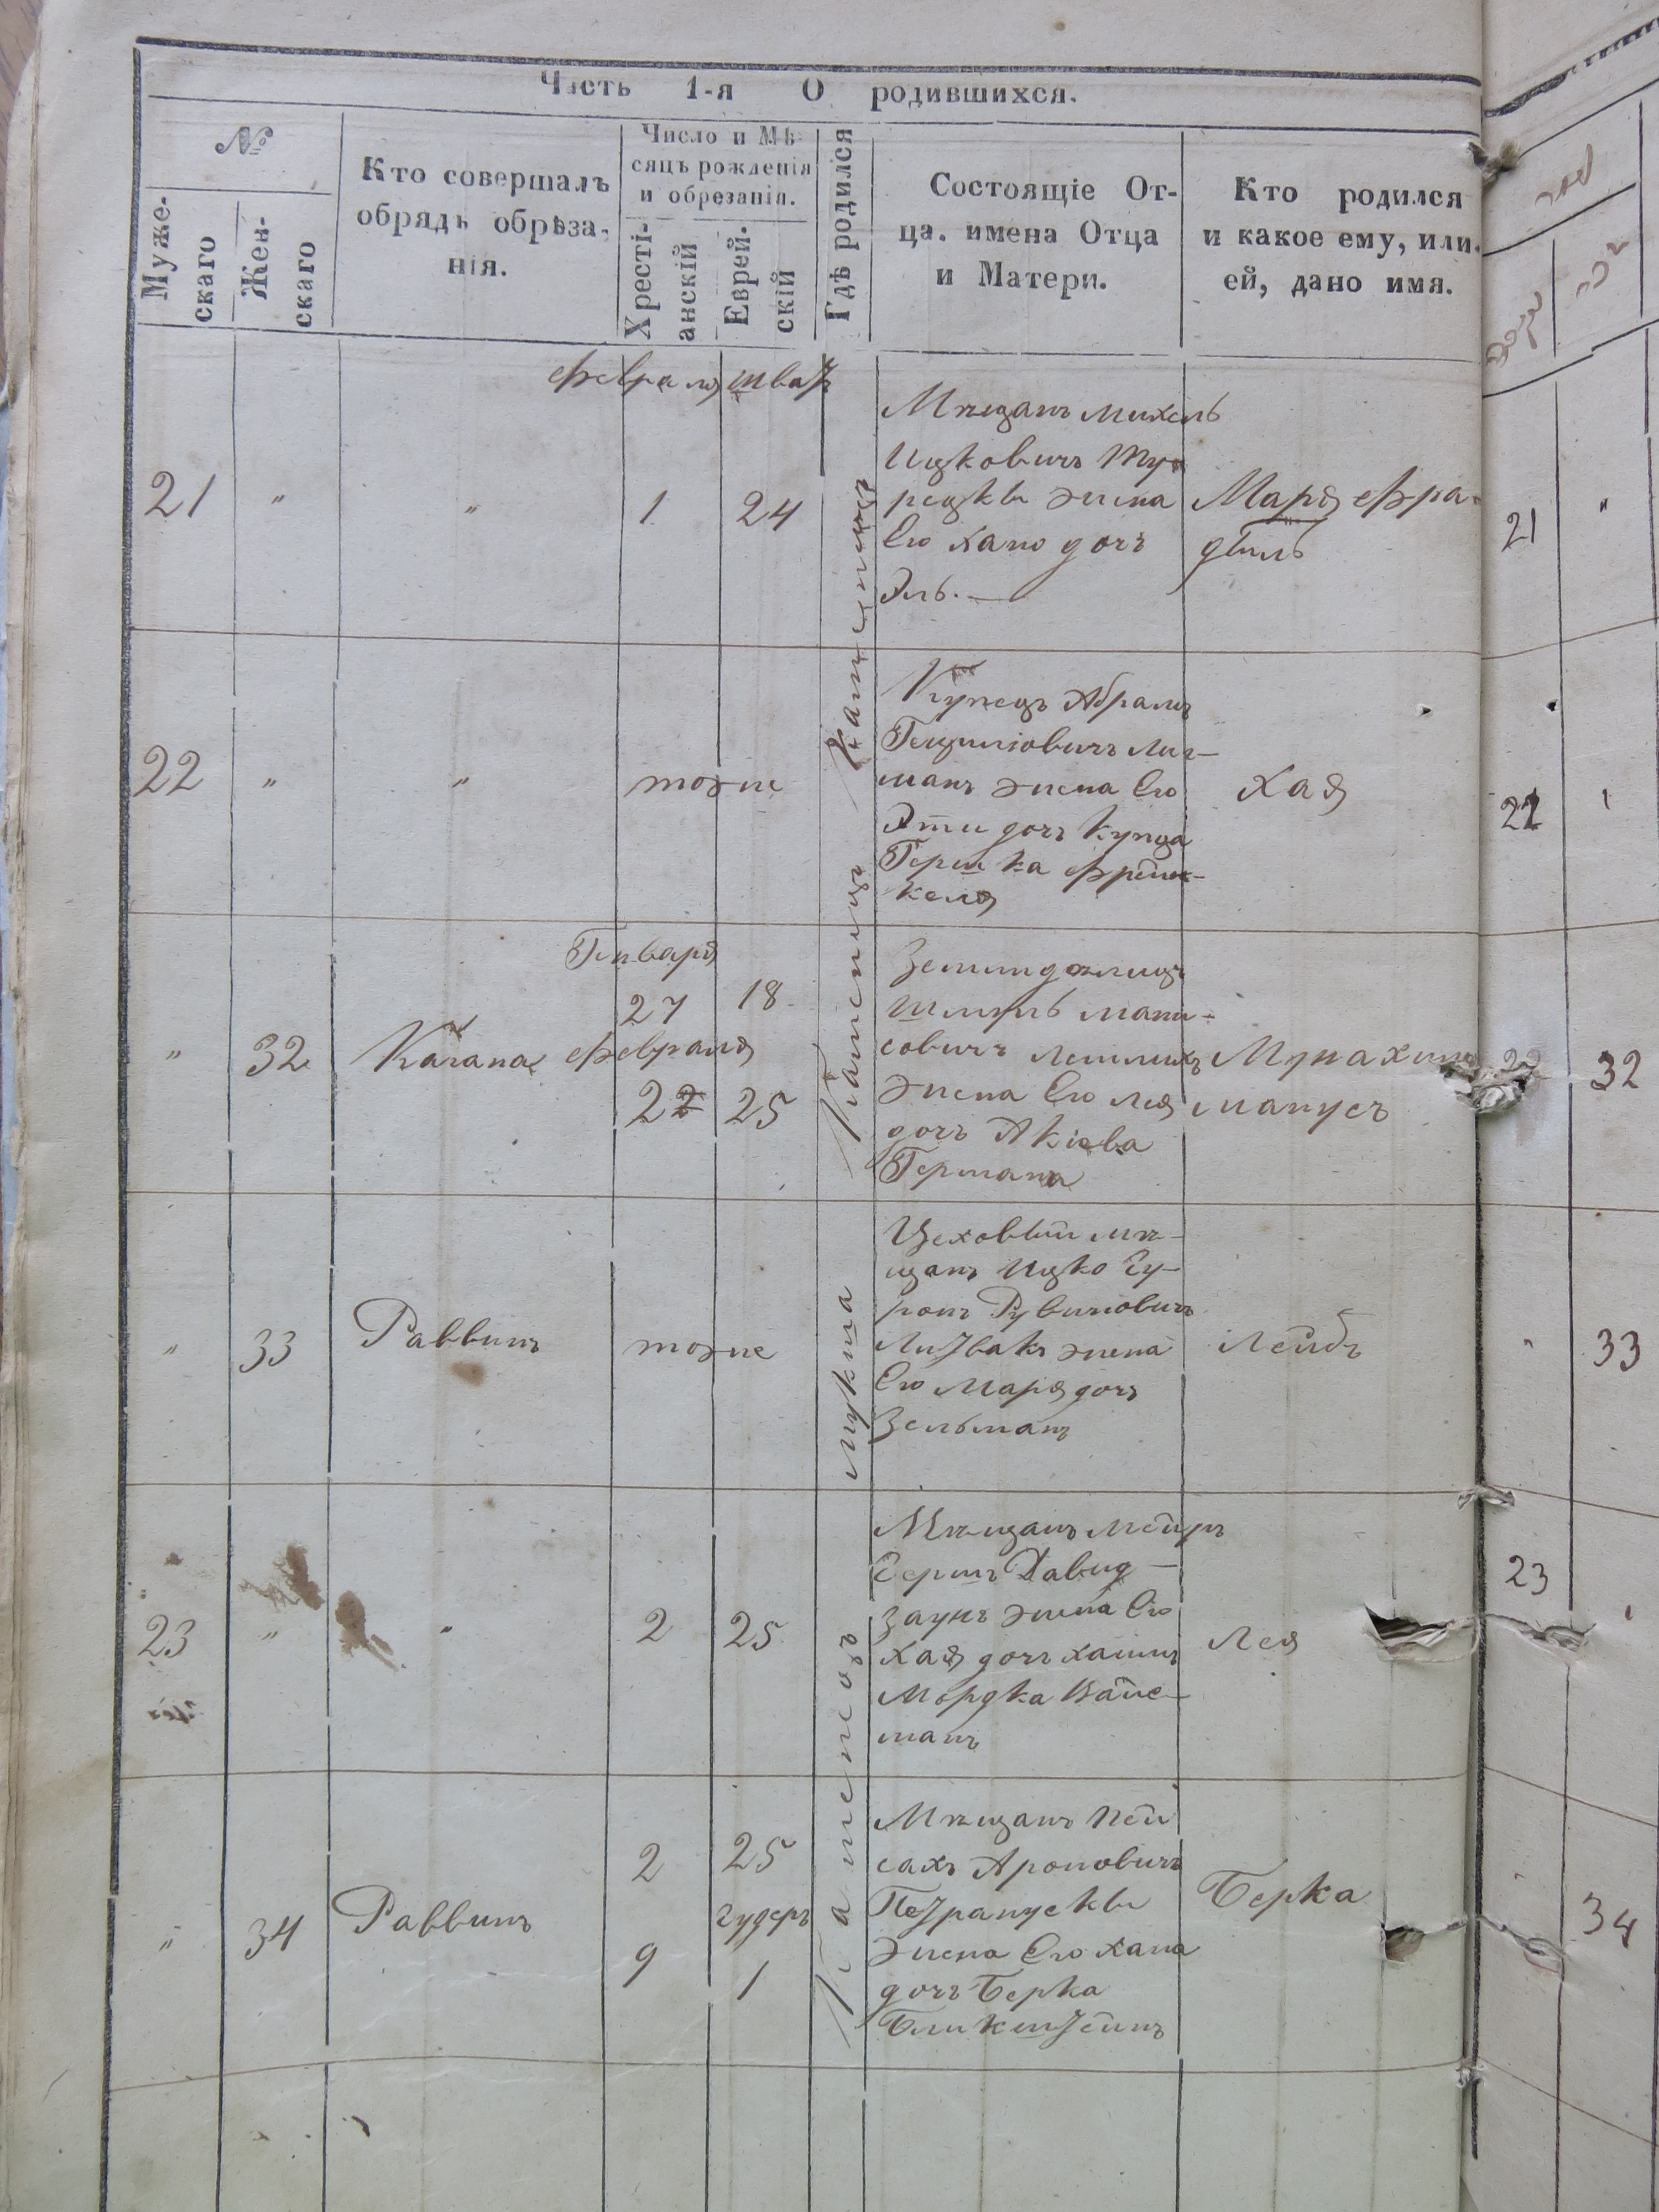 Часть 1-я О родившихся.
№
Муже-
скаго
Жен-
скаго
Кто совершалъ
обрядъ обрѣза-
нія.
Число и Мѣ-
сяцъ рожденія
и обрезанія.
Хресті-
анскій
Еврей-
скій
Гдѣ родился
Состоящіе От-
ца. имена Отца
и Матери.
Кто родился
и какое ему, или
ей, дано имя.
Февраля шватъ
21 " " 1 24
Мѣщанъ Михель
Ицковичъ Ту
рецкы жена
Его Хано дочъ
Эль. —
Маря Фра-
дѣиль
21 "
22 " " тоже
Купецъ Абрамъ
Гецшіовичъ Лиг-
манъ жена Его
Эти дочъ купца
Гершка Фрейн-
келя
Хая
22
Генваря
27 18
" 32 Кагана февраля
22 25
Каменецъ
Земмидѣлицъ
Шмуль Мани-
совичъ
жена Его Лея
дочъ Акіева
Германа
манусъ
32
" 33 Раввинъ тоже
мукша
Цеховый мѣ-
щанъ Ицко Су-
ронъ Рувиновичъ
Литвакъ жена
Его Маря дочъ
Зельманъ
Лейбъ
" 33
23 " " 2 25
Мѣщанъ Мейръ
Геришъ Давид-
заунъ жена Его
Хая дочъ Хаимъ
Мордка Вайс-
манъ
Лея
23
2 25
" 34 Раввинъ
9 1
Каменецъ
Мѣщанъ Пей
сахъ Ароновичъ
Петранускы
жена Его Хана
дочъ Берка
Бликштейнъ
Берка
34